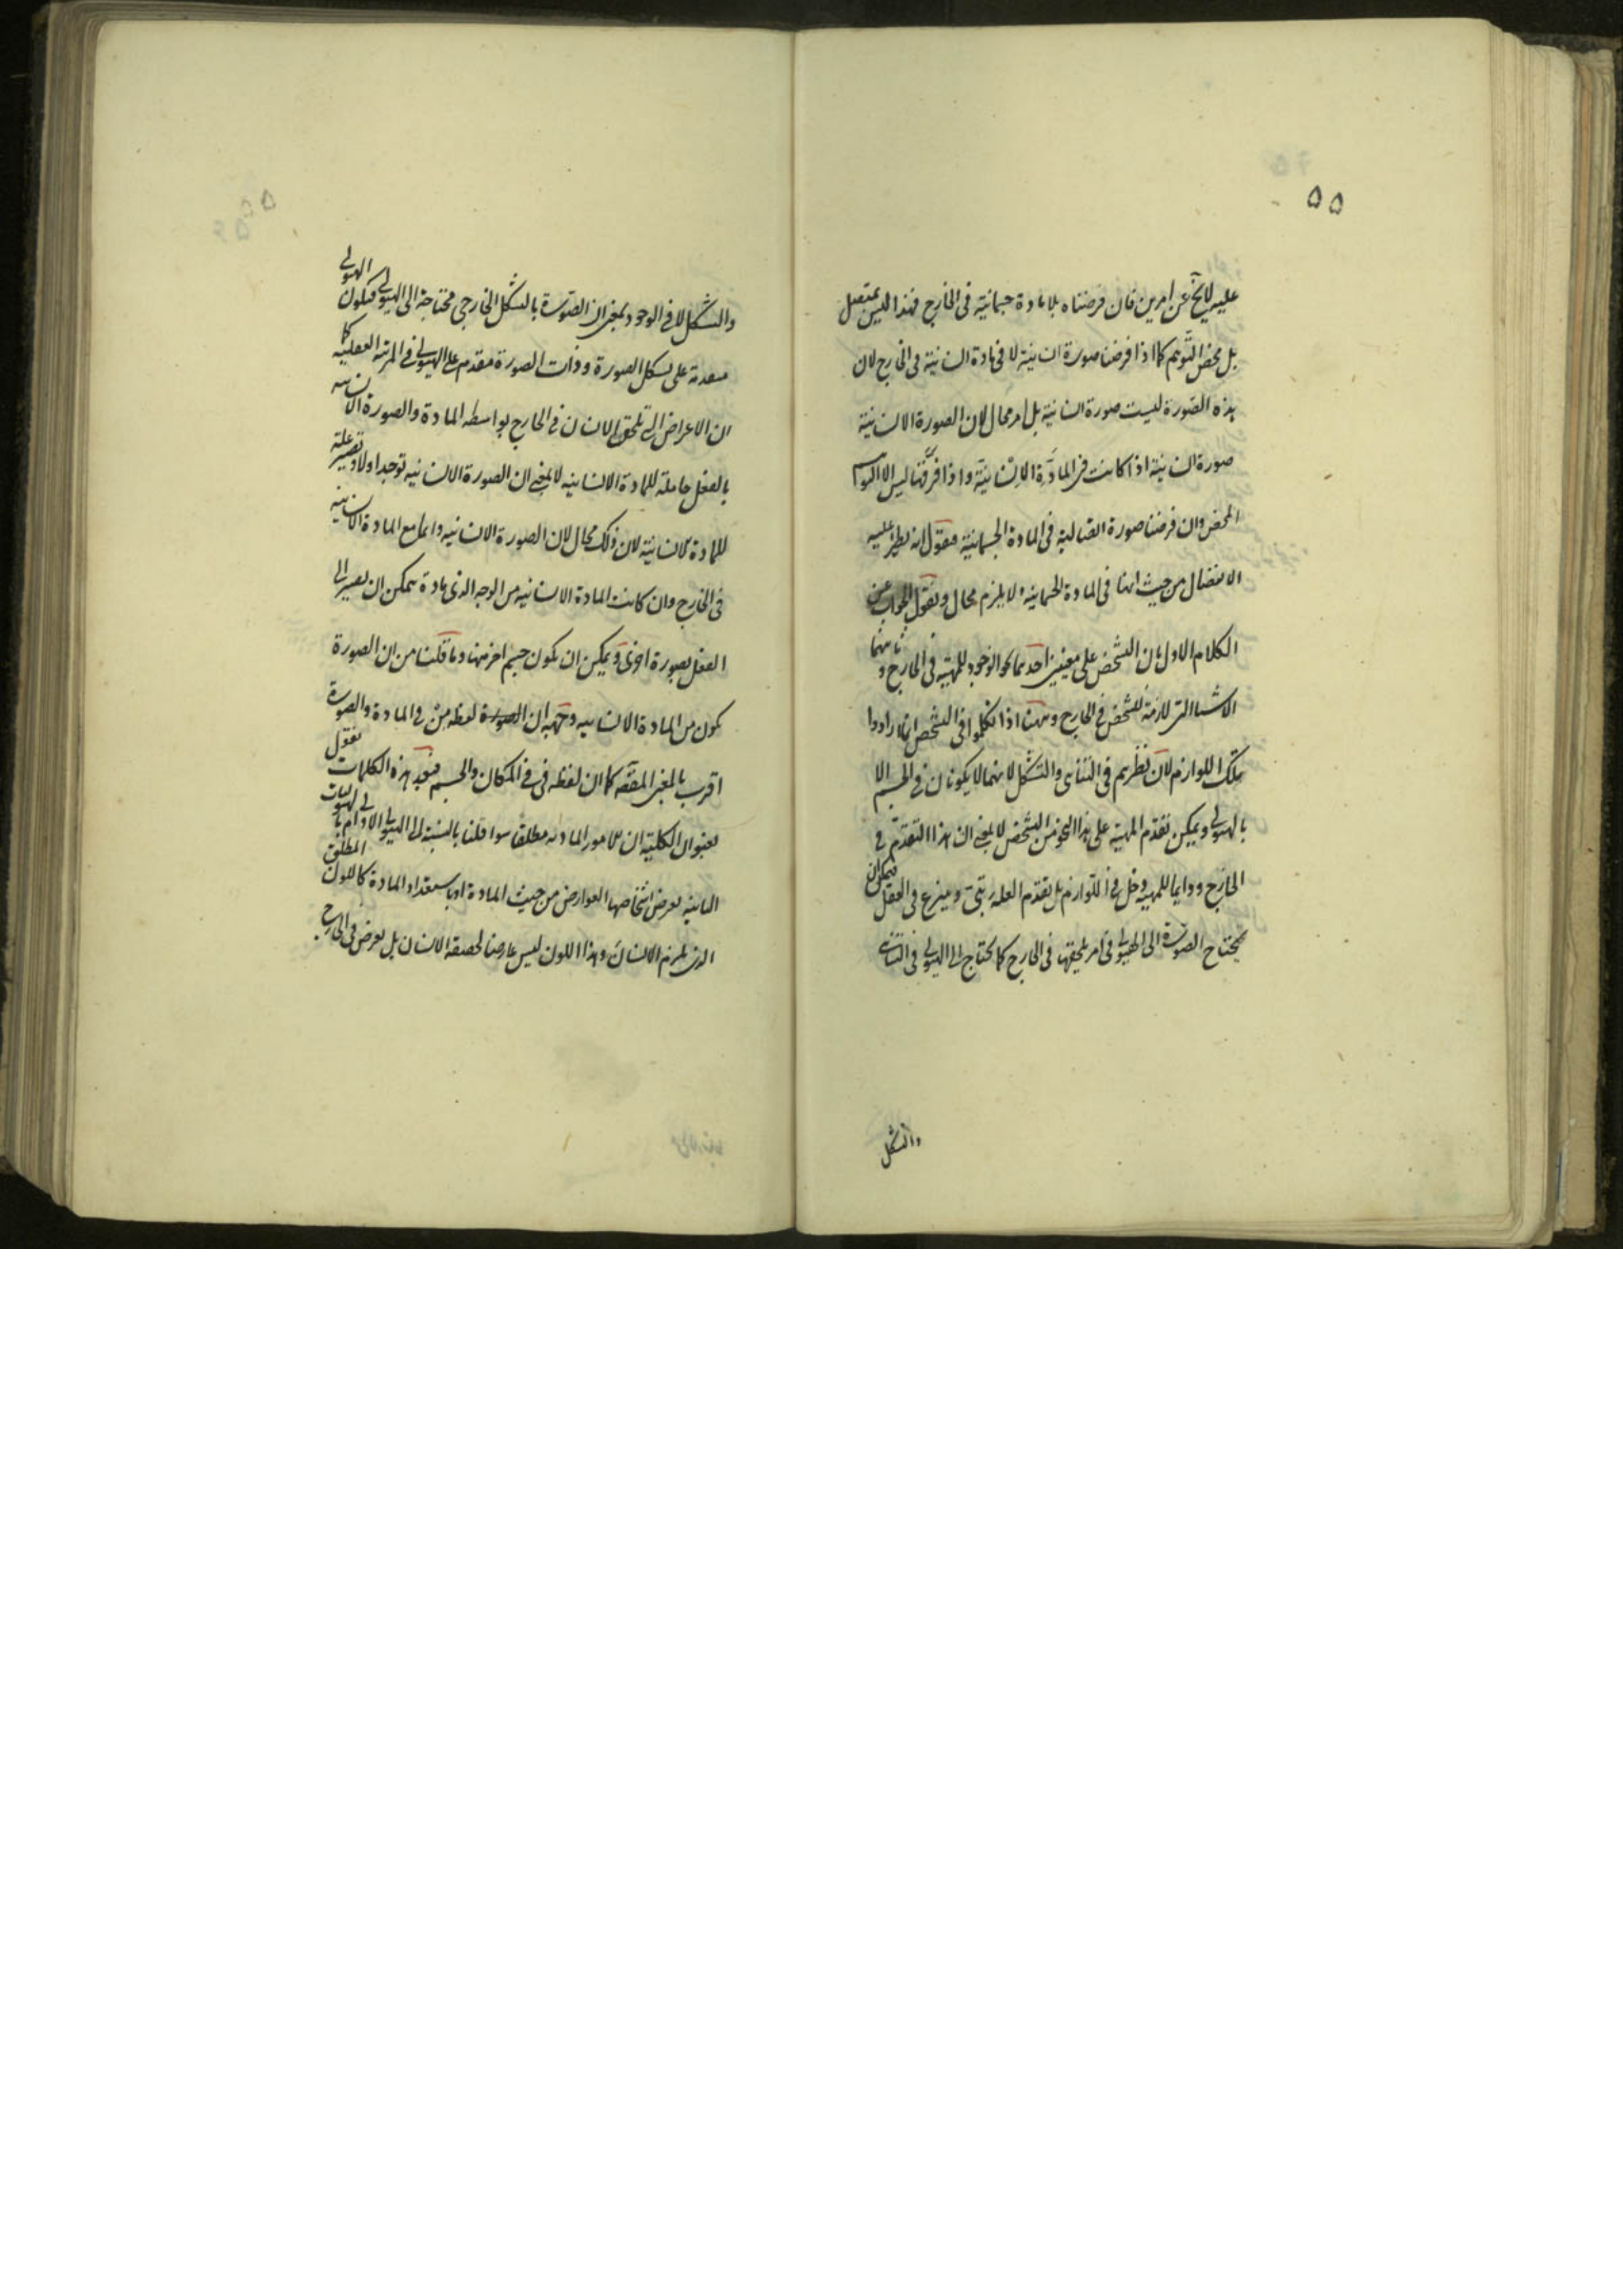 ۵۵
عليه لا يخ عن امرين فان فرضناه بلا مادة جسمانية فى الخارج فهذا ليس بمتعقل
بل محض التوهم كما اذا فرضنا صورة انسانية لا فى مادة انسانية فى الخارج لان
هذه الصورة ليست صورة انسانية بل امر محال لان الصورة الانسانية
صورة انسانية اذا كانت فى المادة الانسانية واذا فرقتها ليس الا التوهم
المحض وان فرضنا صورة القتالية فى المادة الجسمانية فنقول انه يطرا عليه
الانفصال من حيث انها فى المادة الجسمانية ولا يلزم محال ونقول الجواب عن
الكلام الاول بان التشخص على معنيين احدهما نحو الوجود للمهية فى الخارج و ثانيهما
الاشيا التى لازمة للتشخص فى الخارج وههنا اذا تكلموا فى التشخص انما ارادوا
تلك اللوازم لان نظرهم فى التناهى والتشكل لانهما لا يكونان فى الجسم الا
بالهيولى ويمكن تقدم المهية على هذا النحو من التشخص لا بمعنى ان هذا التقدم فى
الخارج ودايما للمهية دخل فى اللوازم بل تقدم العلة رتبتى وينزع فى العقل فيمكن ان
يحتاج الصورة الى الهيولى فى امر يلحقها فى الخارج كما يحتاج الى الهيولى فى التناهى
والتشكل
والتشكل لا فى الوجود بمعنى ان الصورة بالشكل الخارجى محتاجة الى الهيولى فيكون الهيولى
متقدمة على شكل الصورة وذات الصورة مقدم على الهيولى فى المرتبة العقلية كما
ان الاعراض التى تلحق الانسان فى الخارج بواسطة المادة والصورة الانسانية
بالفعل حاملة للمادة الانسانية لا بمعنى ان الصورة الانسانية توجد اولا وتصير علة
للمادة الانسانية لان ذلك محال لان الصورة الانسانية دايما مع المادة الانسانية
فى الخارج وان كانت المادة الانسانية من الوجه الذى مادة يمكن ان تصير الى
الفعل بصورة اخرى ويمكن ان يكون جسم اخر منها وما قلنا من ان الصورة
تكون من المادة الانسانية وجهه ان لفظة من فى المادة والصورة
اقرب بالمعنى المقصد كما ان لفظة فى فى المكان والجسم فبعد هذه الكلمات نقول
بعنوان الكلية ان للامور المادية مطلقا سوا قلنا بالنسبة الى الهيولى الاولى او الهيوليات
الثانية يعرض اشخاصها العوارض من حيث المادة او باستعداد المادة كاللون المطلق
الذى يلزم الانسان وهذا اللون ليس عارضا لحصة الانسان بل يعرض فى الخارج